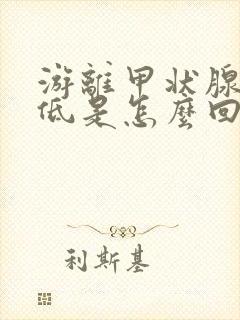 游離甲状腺
低是怎麼回
利斯基